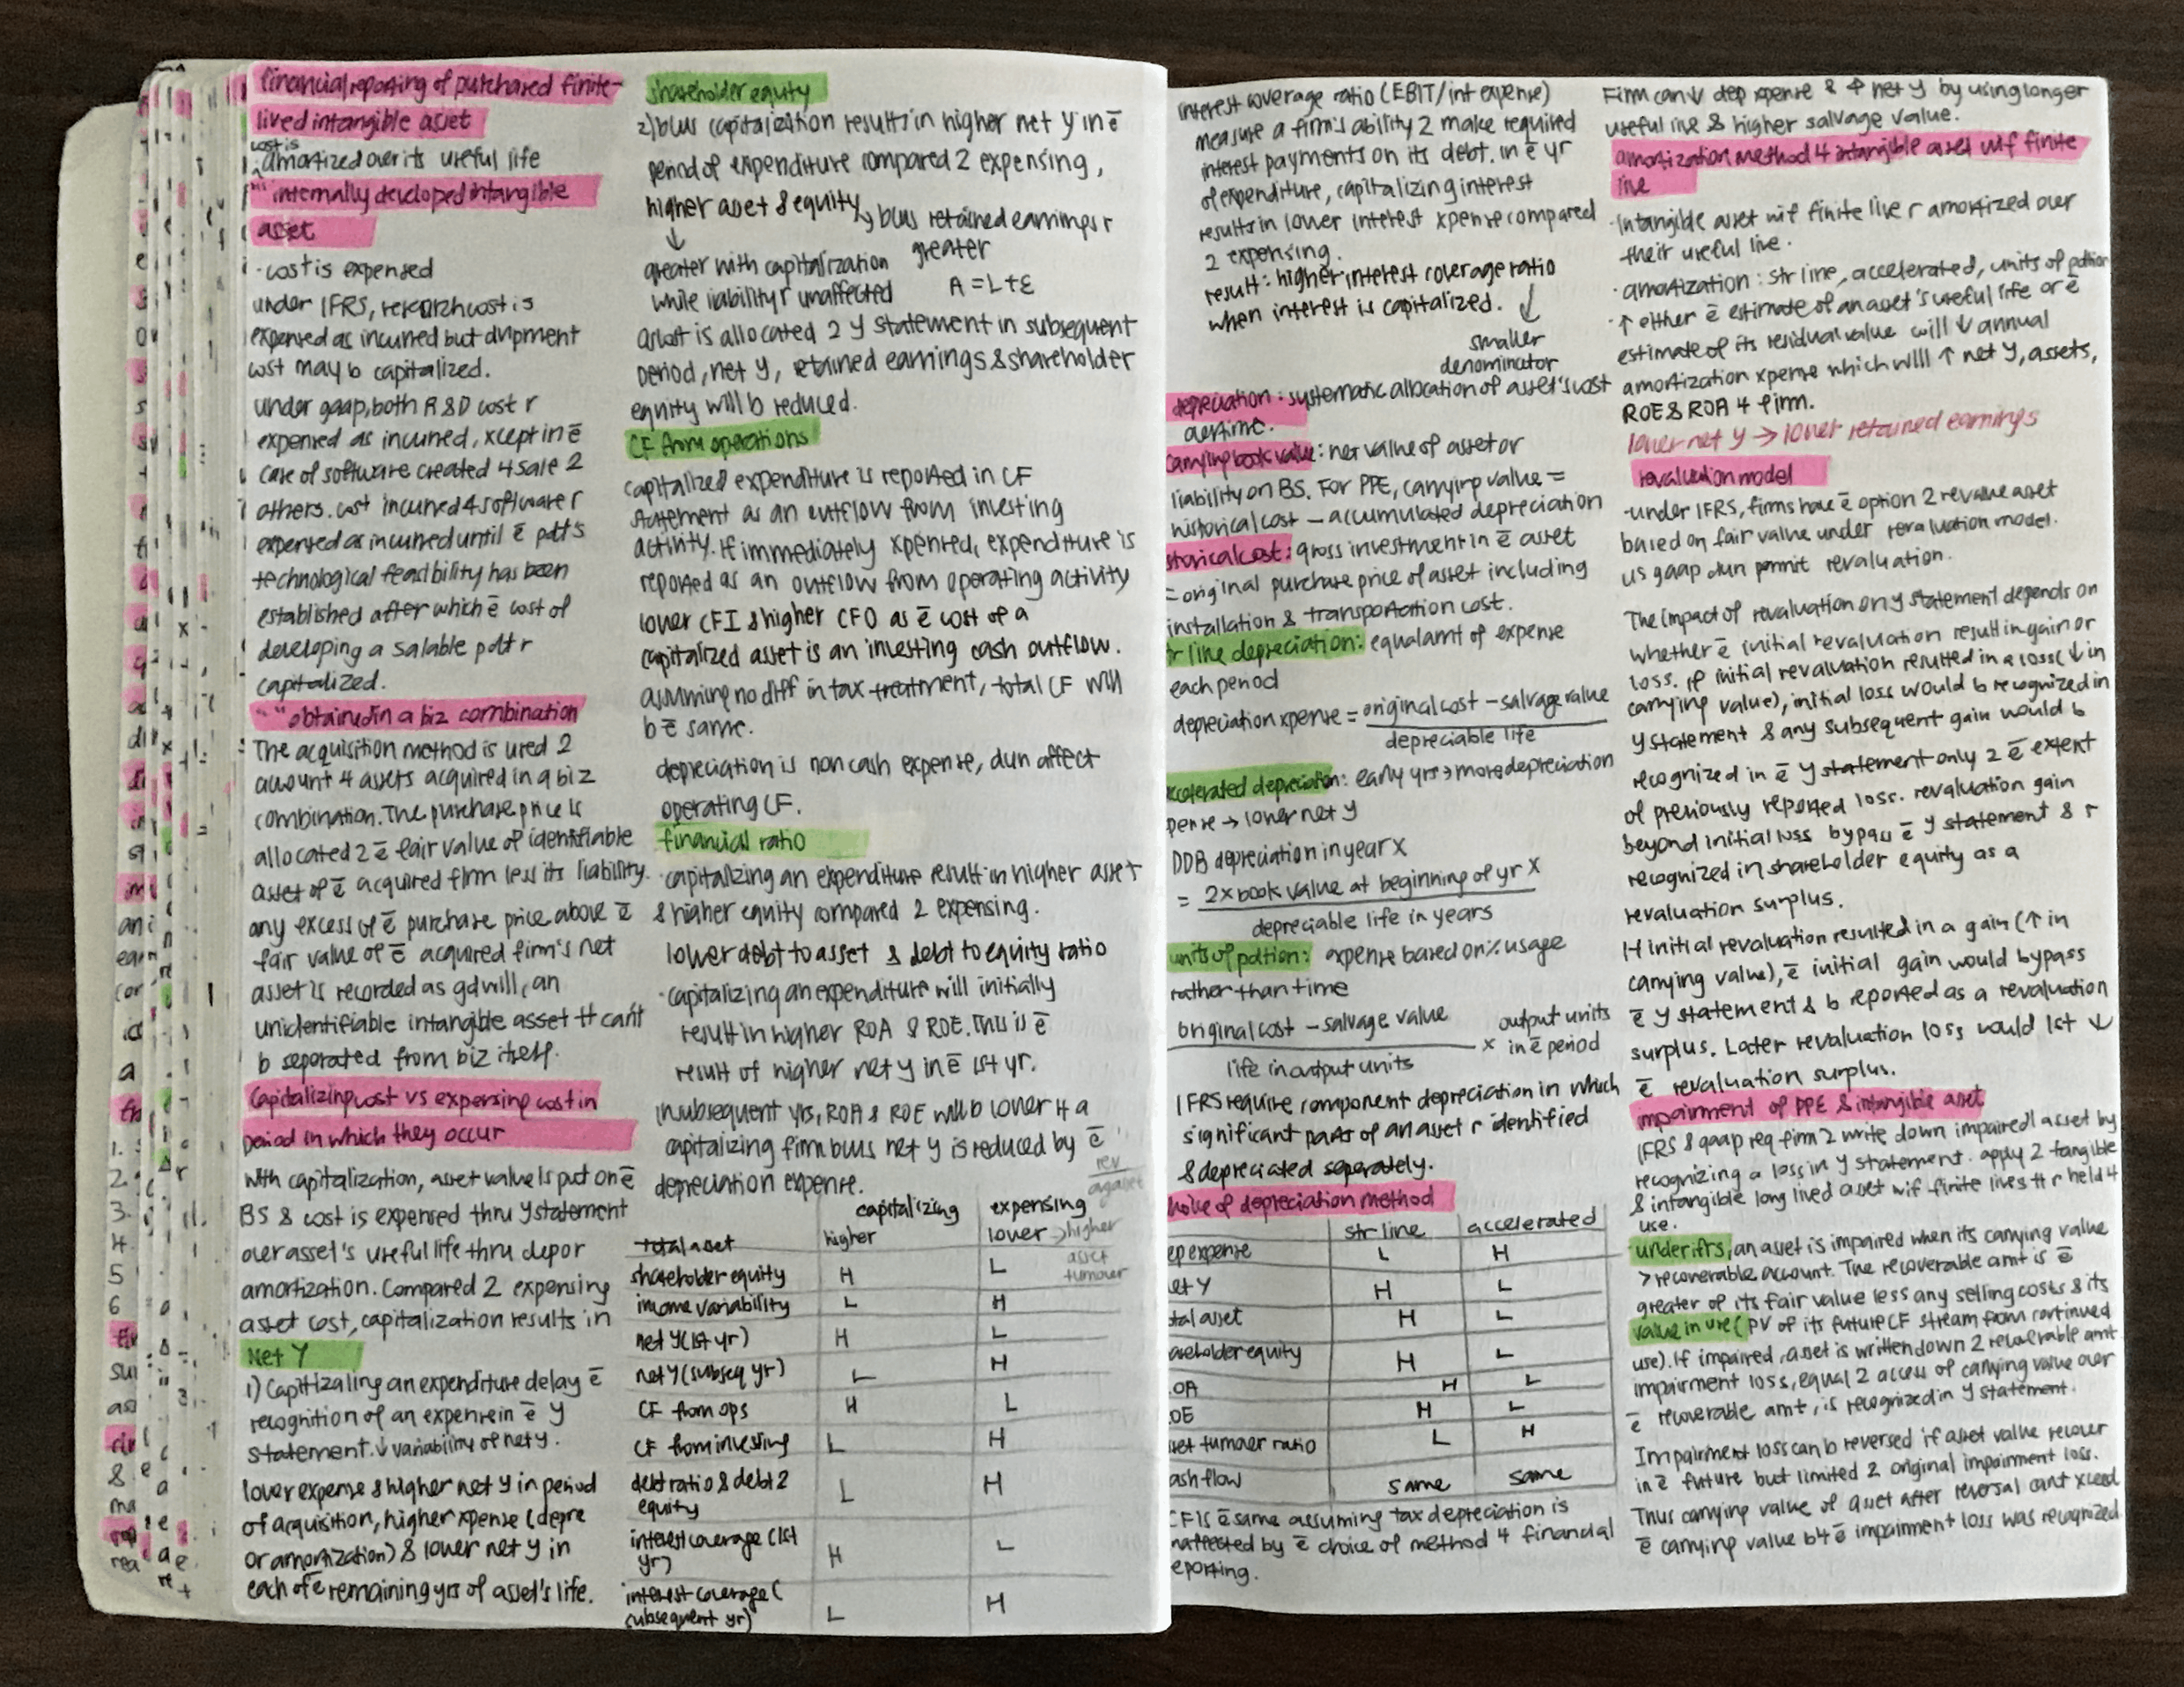 financial reporting of purchased finite-
lived intangible asset
cost is
amortized over its useful life
"" internally developed intangible
asset
· cost is expensed
under IFRS, research cost is
expensed as incurred but dvlpment
cost may b capitalized.
under gaap, both R&D cost r
expensed as incurred, xcept in ē
case of software created 4 sale 2
others. cost incurred 4 software r
expensed as incurred until ē pdt's
technological feasibility has been
established after which ē cost of
developing a salable pdt r
capitalized.
"" obtained in a biz combination
The acquisition method is used 2
account 4 assets acquired in a biz
combination. The purchase price is
allocated 2 ē fair value of identifiable
asset of ē acquired firm less its liability.
any excess of ē purchase price above ē
fair value of ē acquired firm's net
asset is recorded as gdwill, an
unidentifiable intangible asset tt can't
b separated from biz itself.
Capitalizing cost vs expensing cost in
period in which they occur
With capitalization, asset value is put on ē
BS & cost is expensed thru Y statement
over asset's useful life thru dep or
amortization. Compared 2 expensing
asset cost, capitalization results in
Net Y
1) Capitizaling an expenditure delay ē
recognition of an expense in ē Y
statement. ↓ variability of net y.
lower expense & higher net y in period
of acquisition, higher xpense (depre
or amortization) & lower net y in
each of ē remaining yrs of asset's life.
shareholder equity
2) bcus capitalization results in higher net y in ē
period of expenditure compared 2 expensing,
higher asset & equity → bcus retained earnings r
greater
↓
greater with capitalization
while liability r unaffected
A = L + E
as cost is allocated 2 Y statement in subsequent
period, net y, retained earnings & shareholder
equity will b reduced.
CF from operations
capitalized expenditure is reported in CF
statement as an outflow from investing
activity. If immediately xpensed, expenditure is
reported as an outflow from operating activity
lower CFI & higher CFO as ē cost of a
capitalized asset is an investing cash outflow.
assuming no diff in tax treatment, total CF will
b ē same.
depreciation is non cash expense, dun affect
operating CF.
financial ratio
· capitalizing an expenditure result in higher asset
& higher equity compared 2 expensing.
lower debt to asset & debt to equity ratio
· capitalizing an expenditure will initially
result in higher ROA & ROE. This is ē
result of higher net y in ē 1st yr.
in subsequent yrs, ROA & ROE will b lower 4 a
capitalizing firm bcus net y is reduced by ē
depreciation expense.
rev
asset
capitalizing expensing
total asset higher lower → higher
asset
turnover
shareholder equity H L
income variability L H
net Y (1st yr) H L
net Y (subseq yr) L H
CF from ops H L
CF from investing L H
debt ratio & debt 2
equity L H
interest coverage (1st
yr) H L
interest coverage (
subsequent yr) L H
interest coverage ratio (EBIT/int expense)
measure a firm's ability 2 make required
interest payments on its debt. in ē yr
of expenditure, capitalizing interest
results in lower interest xpense compared
2 expensing.
result: higher interest coverage ratio
when interest is capitalized. ↓
smaller
denominator
depreciation: systematic allocation of asset's cost
overtime.
carrying book value: net value of asset or
liability on BS. For PPE, carrying value =
historical cost – accumulated depreciation
storical cost: gross investment in ē asset
= original purchase price of asset including
installation & transportation cost.
r line depreciation: equal amt of expense
each period
depreciation xpense = original cost – salvage value
depreciable life
ccelerated depreciation: early yrs → more depreciation
pense → lower net y
DDB depreciation in year X
= 2 × book value at beginning of yr X
depreciable life in years
units of pdtion: expense based on % usage
rather than time
original cost – salvage value × output units
in ē period
life in output units
IFRS require component depreciation in which
significant parts of an asset r identified
& depreciated separately.
hoice of depreciation method
str line accelerated
ep expense L H
et Y H L
tal asset H L
areholder equity H L
OA H L
OE H L
set turnover ratio L H
ash flow same same
CF is ē same assuming tax depreciation is
naffected by ē choice of method 4 financial
eporting.
Firm can ↓ dep xpense & ↑ net y by using longer
useful live & higher salvage value.
amortization method 4 intangible asset wif finite
live
· Intangible asset wif finite live r amortized over
their useful live.
· amortization: str line, accelerated, units of pdtion
· ↑ either ē estimate of an asset's useful life or ē
estimate of its residual value will ↓ annual
amortization xpense which will ↑ net y, assets,
ROE & ROA 4 firm.
lower net y → lower retained earnings
revaluation model
· under IFRS, firms have ē option 2 revalue asset
based on fair value under revaluation model.
us gaap dun permit revaluation.
The impact of revaluation on y statement depends on
whether ē initial revaluation result in gain or
loss. If initial revaluation resulted in a loss (↓ in
carrying value), initial loss would b recognized in
y statement & any subsequent gain would b
recognized in ē y statement only 2 ē extent
of previously reported loss. revaluation gain
beyond initial loss bypass ē y statement & r
recognized in shareholder equity as a
revaluation surplus.
If initial revaluation resulted in a gain (↑ in
carrying value), ē initial gain would bypass
ē y statement & b reported as a revaluation
surplus. Later revaluation loss would 1st ↓
ē revaluation surplus.
impairment of PPE & intangible asset
IFRS & gaap req firm 2 write down impaired asset by
recognizing a loss in y statement. apply 2 tangible
& intangible long lived asset wif finite lives tt r held 4
use.
under ifrs, an asset is impaired when its carrying value
> recoverable account. The recoverable amt is ē
greater of its fair value less any selling costs & its
value in use (PV of its future CF stream from continued
use). If impaired, asset is written down 2 recoverable amt
impairment loss, equal 2 access of carrying value over
ē recoverable amt, is recognized in y statement.
Impairment loss can b reversed if asset value recover
in ē future but limited 2 original impairment loss.
Thus carrying value of asset after reversal cant xceed
ē carrying value b4 ē impairment loss was recognized